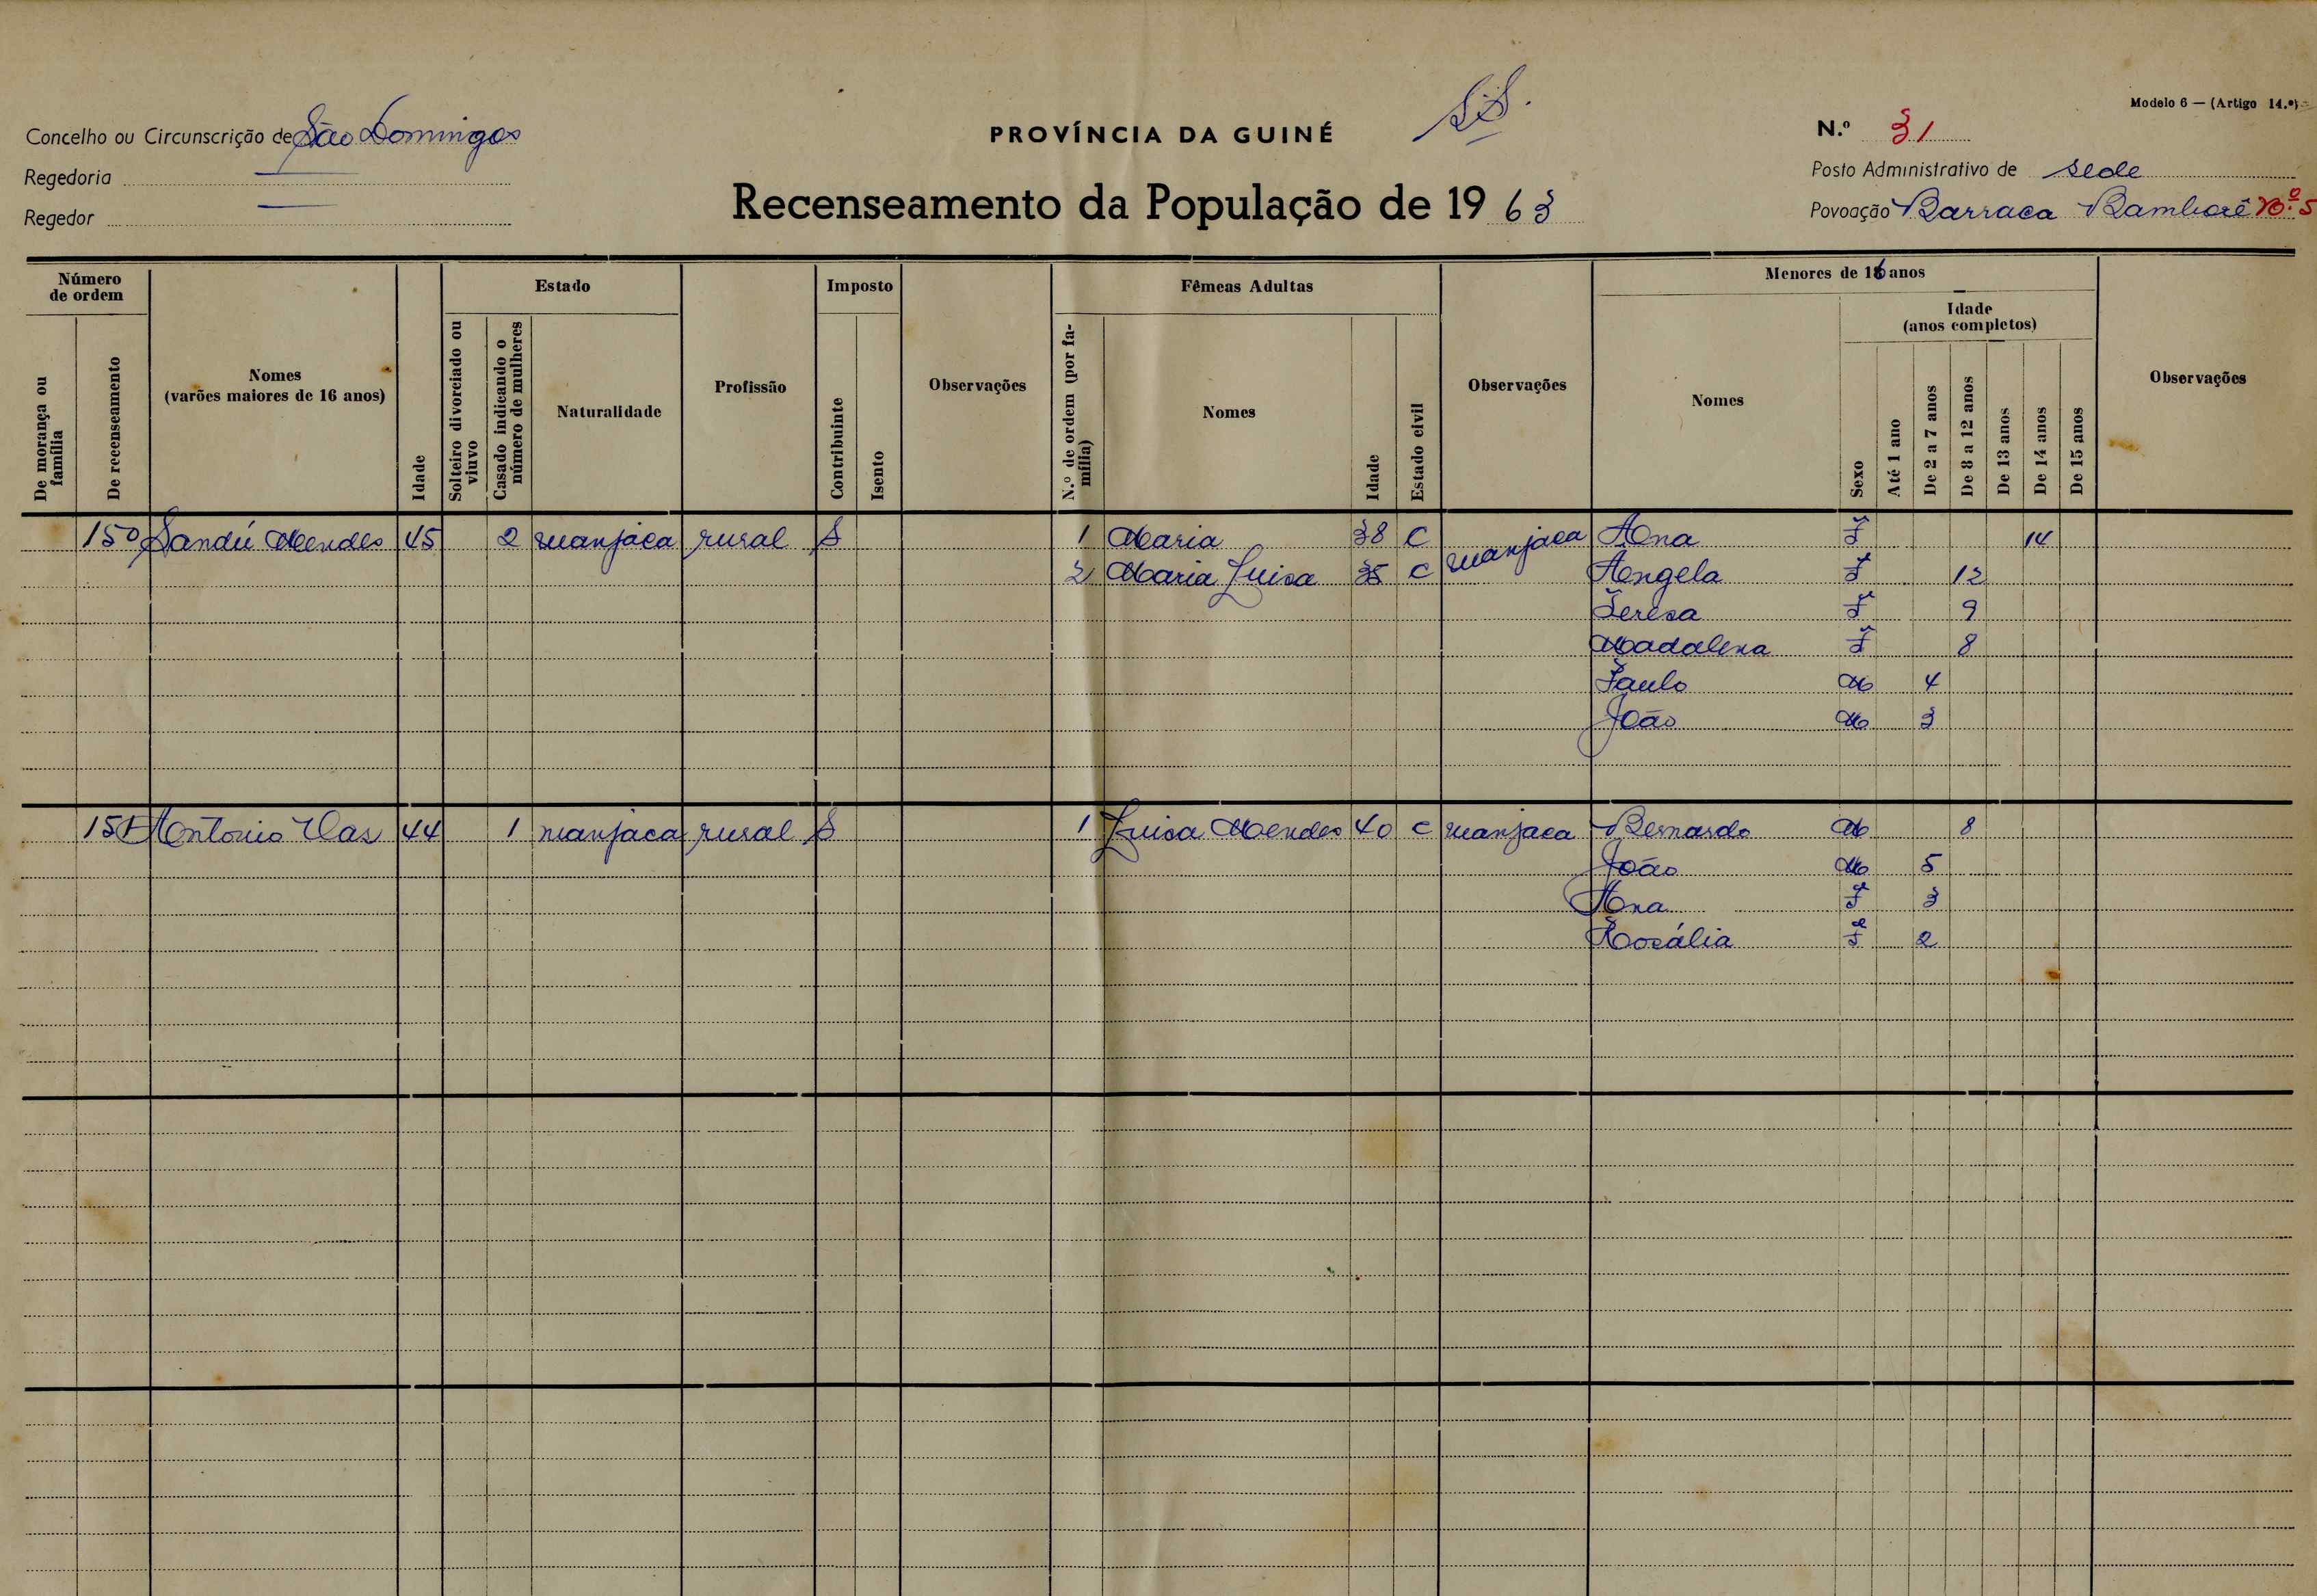 Modelo 6 — (Artigo 14.º)
Concelho ou Circunscrição de São Domingos
PROVÍNCIA DA GUINÉ
N.º 31
Regedoria —
Posto Administrativo de sede
Regedor —
Recenseamento da População de 1963
Povoação Barraca Bambaré Nº 5
Número de ordem
Estado
Imposto
Fêmeas Adultas
Menores de 16 anos
Idade (anos completos)
De morança ou família
De recenseamento
Nomes (varões maiores de 16 anos)
Idade
Solteiro divorciado ou viuvo
Casado indicando o número de mulheres
Naturalidade
Profissão
Contribuinte
Isento
Observações
N.º de ordem (por família)
Nomes
Idade
Estado civil
Observações
Nomes
Sexo
Até 1 ano
De 2 a 7 anos
De 8 a 12 anos
De 13 anos
De 14 anos
De 15 anos
Observações
150 Sandú Mendes 45 2 manjaca rural S 1 Maria 38 C manjaca Ana F 14
2 Maria Luisa 35 C Angela F 12
Teresa F 9
Madalena F 8
Paulo M 4
João M 3
151 Antonio Vaz 44 1 manjaca rural S 1 Luisa Mendes 40 C manjaca Bernardo M 8
João M 5
Ana F 3
Rosália F 2